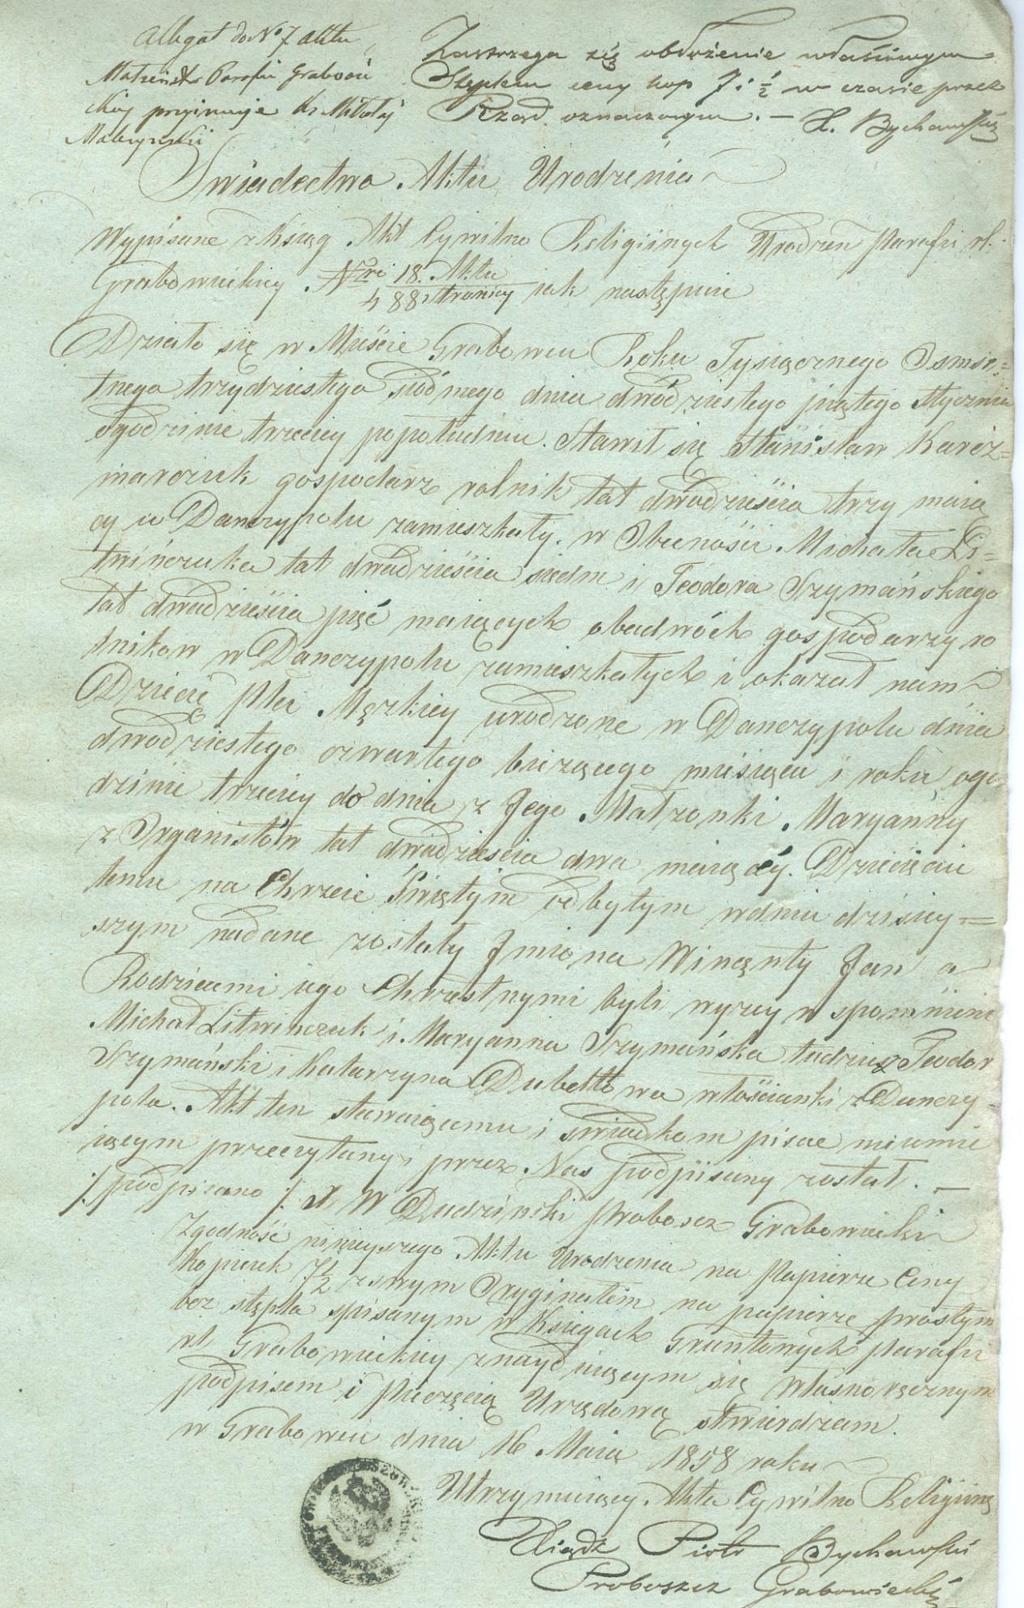 Allegat do No 7 Aktu
Małżeńst. Parafii Grabowi
ckiej przyjmuje Ks. Mikołaj
Zastrzega się obłożenie właściwym
Stęplem ceny kop 7 i 1/2 w czasie przez
Rząd oznaczonym. — X. Bychawski
Świadectwo Aktu Urodzenia
Wypisane z Ksiąg Akt Cywilno Religijnych Urodzeń Parafii rł.
Grabowieckiej. Nri 18 Aktu
4 88 stronicy jak następuie
Działo się w Mieście Grabowcu Roku Tysiącznego Osmse=
tnego trzydziestego siódmego dnia dwódziestego piątego Stycznia
o godzinie trzeciej popołudniu. Stawił się Stanisław Karcz=
marczuk gospodarz rolnik lat dwadzieścia trzy maią
cy w Danczypolu zamieszkały. w Obecności Michała Li=
twińczuka lat dwadzieścia siedm i Teodora Szymańskiego
lat dwadzieścia pięć maiących obudwóch gospodarzy ro
lników w Danczypolu zamieszkałych i okazał nam
Dziecię Płci Męzkiey urodzone w Danczypolu dnia
dwódziestego czwartego bieżącego miesiąca i roku, ogo
dzinie trzeciey do dnia z Jego Małżonki Maryanny
z Organistów lat dwadzieścia dwa maiącéy. Dziecięciu
temu na Chrzcie Świętym odbytym w dniu dzisiey=
szym nadane zostały Jmiona Wincenty Jan a
Rodzicami iego Chrzestnymi byli wyżey wspomnieni
Michał Litwinczuk i Maryanna Szymańska tudzież Teodor
Szymański i Katarzyna Dubeltowa włościanki z Danczy
pola. Akt ten stawaiącemu i świadkom pisac nieumie
iącym przeczytany i przez Nas podpisany został. —
/: podpisano :/ X. W Dudziński Proboscz Grabowiecki
Zgodność ninieyszego Aktu Urodzenia na Papierze Ceny
Kopieiek 7 1/2 z swym Oryginałem na papierze prostym
bez stępla spisanym w Księgach Gruntowych Parafii
rł Grabowieckiey znayduiącym się własnoręcznym
podpisem i Pieczęcią Urzędową stwierdzam.
w Grabowcu dnia 16 Maia 1858 roku
Utrzymuiący Akta Cywilno Religiine
Xiądz Piotr Bychawski
Proboszcz Grabowiecki